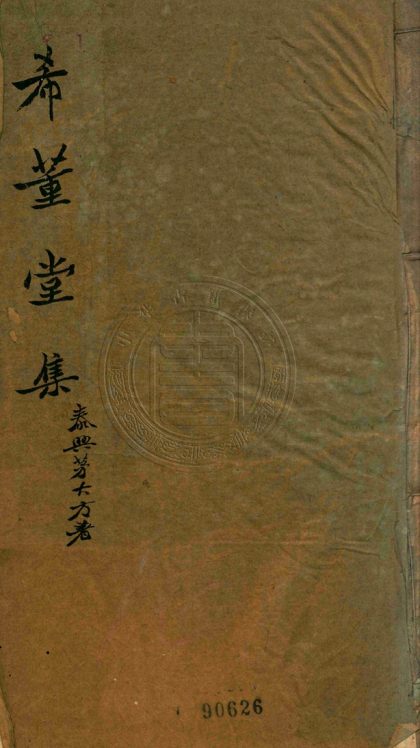 希董堂集
泰興茅大方著
90626